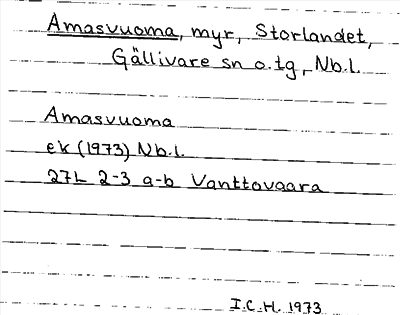 Amasvuoma, myr, Storlandet,
Gällivare sn o. tg, Nb.l.
Amasvuoma
ek (1973) Nb.l.
27L 2-3 a-b Vanttovaara
I.C.H. 1973